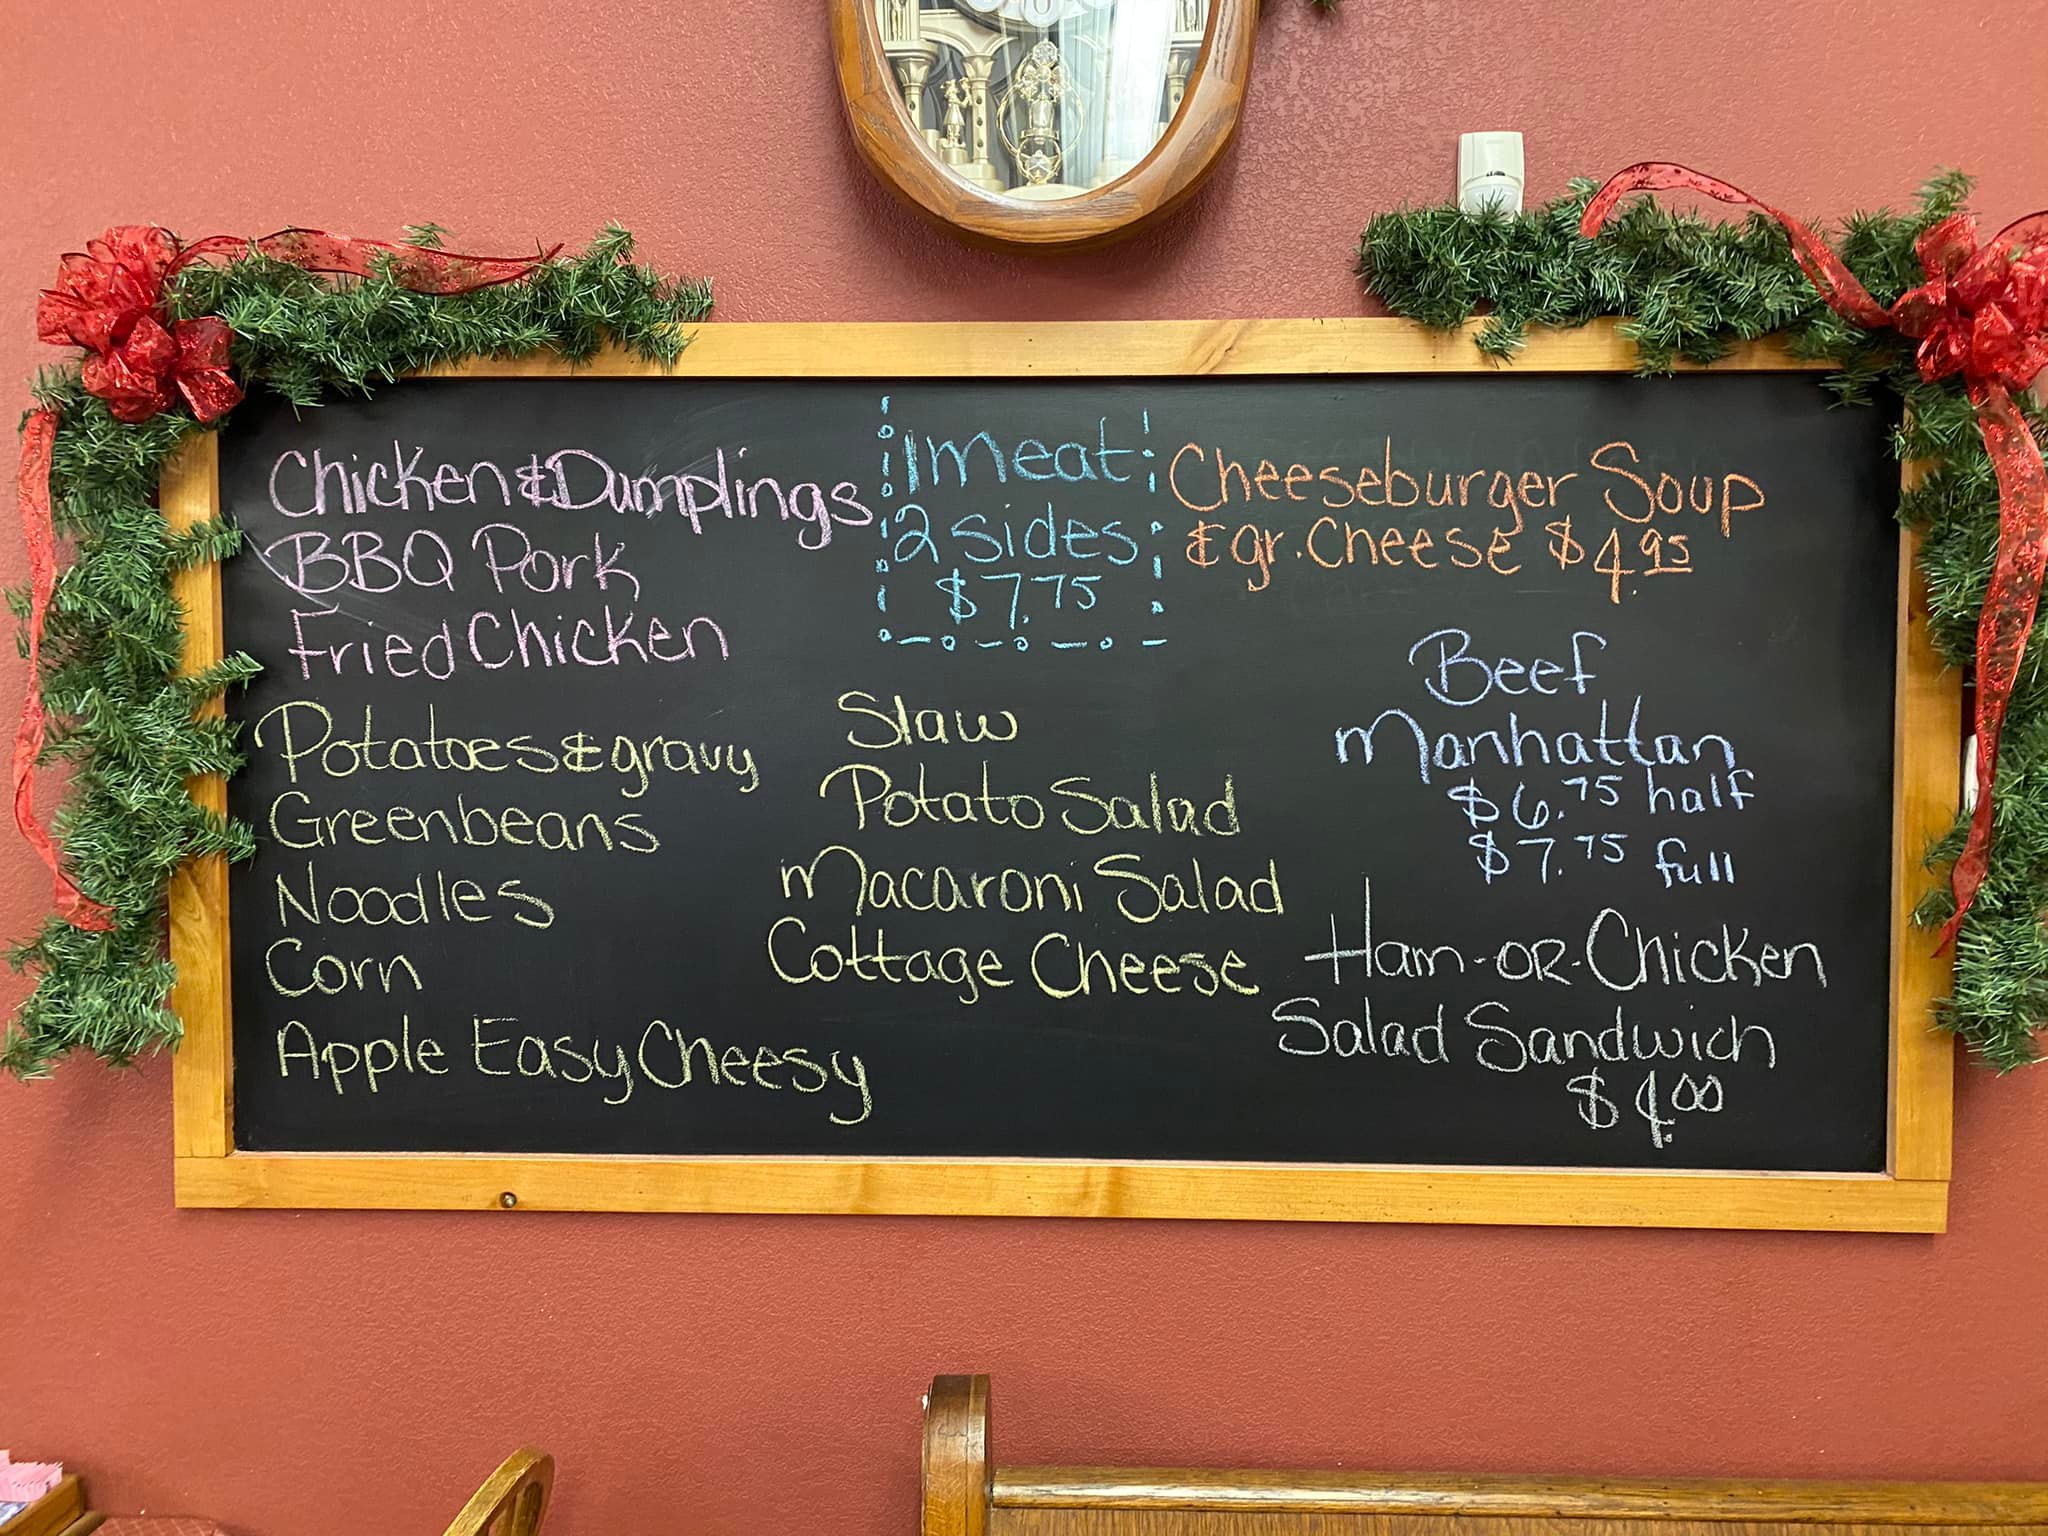 Chicken & Dumplings
BBQ Pork
Fried Chicken
1 meat
2 sides
$7.75
Cheeseburger Soup
& gr. Cheese $4.95
Potatoes & gravy
Greenbeans
Noodles
Corn
Apple Easy Cheesy
Slaw
Potato Salad
Macaroni Salad
Cottage Cheese
Beef
Manhattan
$6.75 half
$7.75 full
Ham -OR- Chicken
Salad Sandwich
$4.00